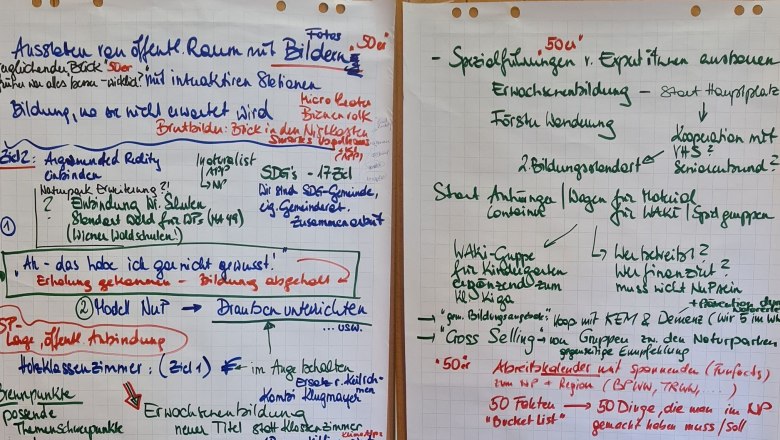 Ausstatten von öffentl. Raum mit Bildern
Fotos
"50er"
"50er"
mit interaktiven Stationen
Bildung, wo sie nicht erwartet wird
Micro Theater
Bienenvolk
Brutbilder: Blick in den Nistkasten
(APP)
Ziel 2: Augmended Reality
einbinden
inaturalist
APP
→ NP
SDG's - 17 Ziel
Wir sind SDG-Gemeinde,
eig. Gemeinderat.
Zusammenarbeit
Naturpark Erweiterung?!
? Einbindung Wr. Schulen
Standort Wald für (MA 49)
(Wiener Waldschulen!)
1
"Ah - das habe ich gar nicht gewusst!"
Erholung gekommen - Bildung abgeholt
2 Modell NuP → Draußen unterrichten
... usw.
Lage, öffentl. Anbindung
Holzklassenzimmer: (Ziel 1) im Auge behalten
Kombi Klugmayer
Brennpunkte
Erwachsenenbildung
Themenschwerpunkte
neuer Titel statt Klassenzimmer
"50er"
- Spezialführungen v. ExpertInnen ausbauen
Erwachsenenbildung - Start Hauptplatz
Förster Wanderung
Kooperation mit
VHS?
Seniorenbund?
2. Bildungsstandort
Start Anhänger / Wagen für Material
Container für WAKI / Spielgruppen
WAKi-Gruppe
für Kindergarten
ergänzend zum
Kiga
Wer betreibt?
Wer finanziert?
muss nicht NuP sein
→ "gem. Bildungsangebote": Koop mit KEM & Demenz (Wir 5 im
→ "Cross Selling" → von Gruppen zw. den Naturparken
gegenseitige Empfehlung
"50er" Abreißkalender mit spannenden (Funfacts)
zum NP + Region (BPWW, TRWN, ...)
50 Fakten → 50 Dinge, die man im NP
"Bucket List" gemacht haben muss/soll